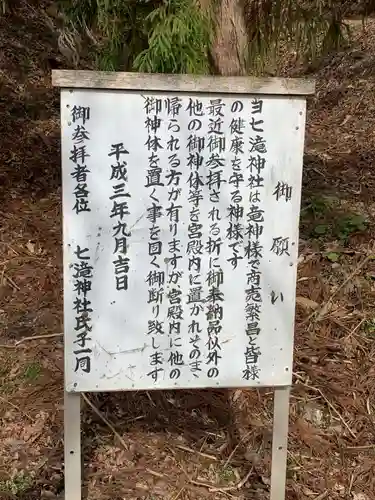 御願い
ヨ七滝神社は竜神様で商売繁昌と皆様
の健康を守る神様です
最近御参拝される折に御奉納品以外の
他の御神体等を宮殿内に置かれそのまゝ
帰られる方が有りますが宮殿内に他の
御神体を置く事を固く御断り致します
平成三年九月吉日
七滝神社氏子一同
御参拝者各位